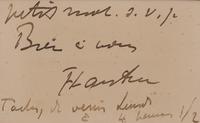 petit mot. s. v. p.
Bien à vous
Tachez de venir lundi
à 4 heures 1/2